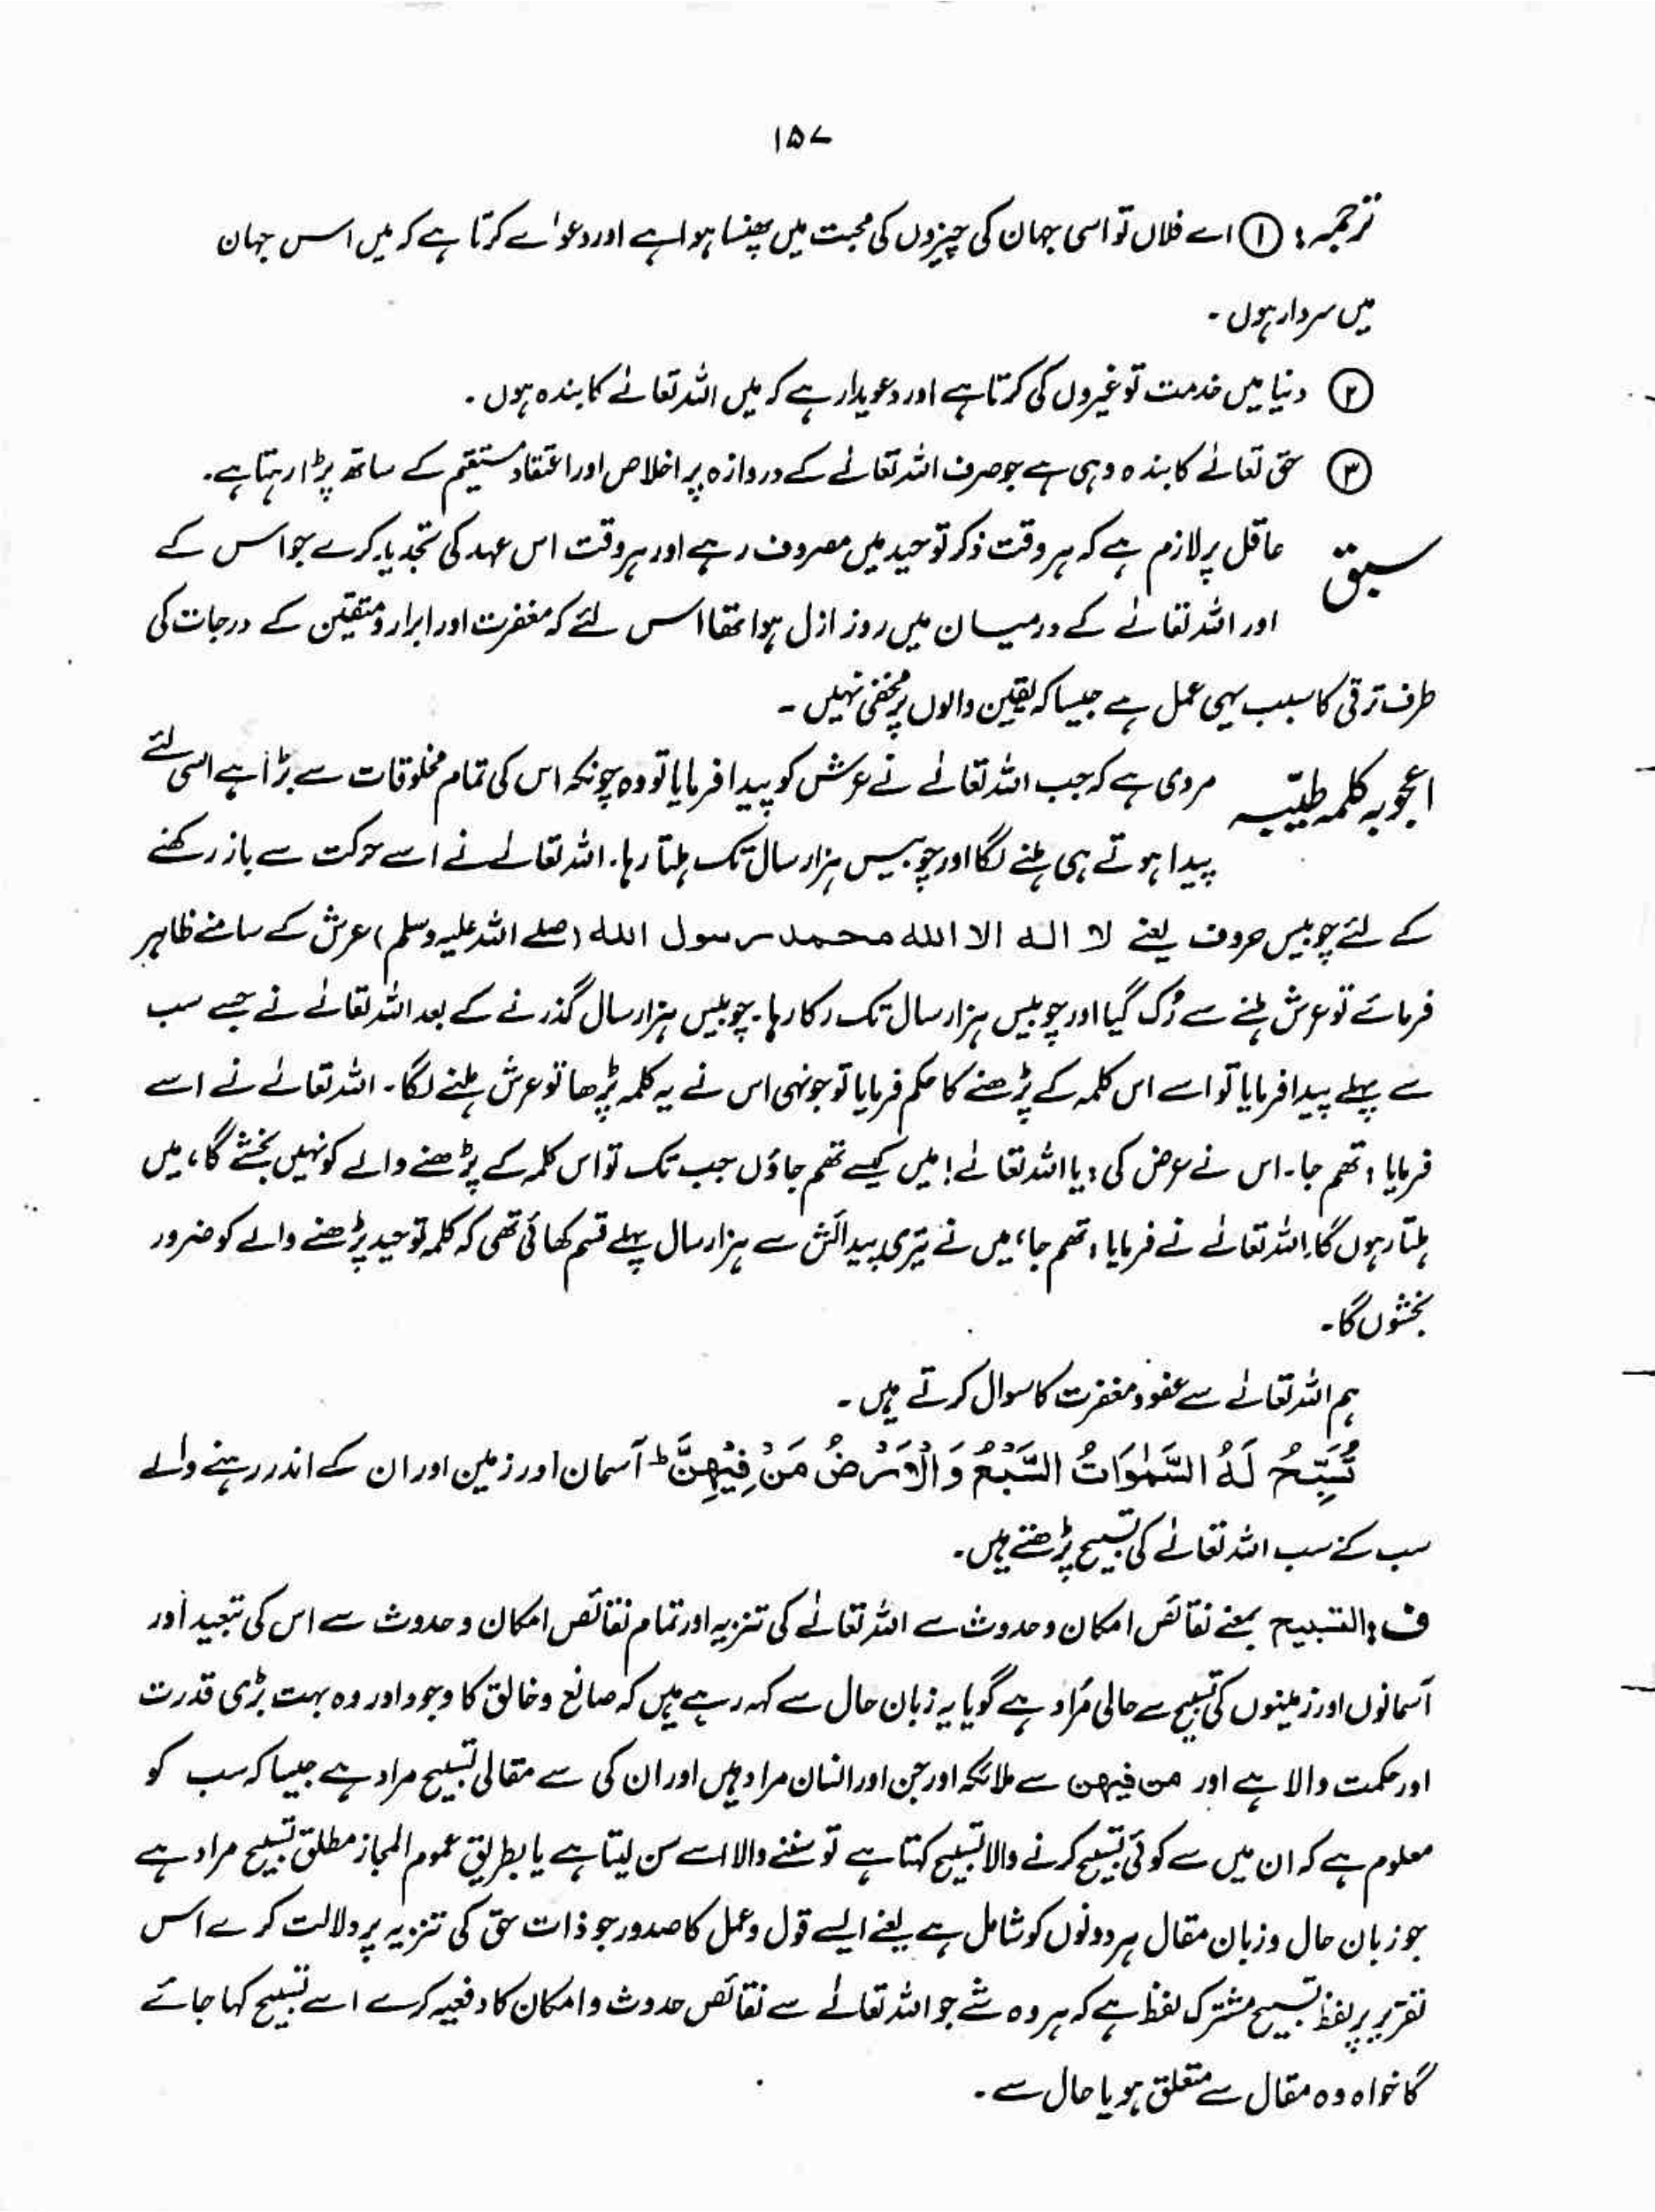 ۱۵۷
ترجمہ: ① اے فلاں تو اسی جہان کی چیزوں کی محبت میں پھنسا ہوا ہے اور دعوٰے کرتا ہے کہ میں اس جہان
میں سردار ہوں ۔
② دنیا میں خدمت تو غیروں کی کرتا ہے اور دعویدار ہے کہ میں اللہ تعالےٰ کا بندہ ہوں ۔
③ حق تعالےٰ کا بندہ وہی ہے جو صرف اللہ تعالےٰ کے دروازہ پر اخلاص اور اعتقاد مستقیم کے ساتھ پڑا رہتا ہے۔
سبق عاقل پر لازم ہے کہ ہر وقت ذکر توحید میں مصروف رہے اور ہر وقت اس عہد کی تجدید کرے جو اس کے
اور اللہ تعالےٰ کے درمیان میں روز ازل ہوا تھا اس لئے کہ مغفرت اور ابرار و متقین کے درجات کی
طرف ترقی کا سبب یہی عمل ہے جیسا کہ یقین والوں پر مخفی نہیں ۔
اعجوبہ کلمہ طیّبہ مروی ہے کہ جب اللہ تعالےٰ نے عرش کو پیدا فرمایا تو وہ چونکہ اس کی تمام مخلوقات سے بڑا ہے اسی لئے
پیدا ہوتے ہی ہلنے لگا اور چوبیس ہزار سال تک ہلتا رہا۔ اللہ تعالےٰ نے اسے حرکت سے باز رکھنے
کے لئے چوبیس حروف یعنے لا الہ الا اللہ محمد رسول اللہ (صلے اللہ علیہ وسلم) عرش کے سامنے ظاہر
فرمائے تو عرش ہلنے سے رُک گیا اور چوبیس ہزار سال تک رکا رہا۔ چوبیس ہزار سال گذرنے کے بعد اللہ تعالےٰ نے جسے سب
سے پہلے پیدا فرمایا تو اسے اس کلمہ کے پڑھنے کا حکم فرمایا تو جونہی اس نے یہ کلمہ پڑھا تو عرش ہلنے لگا۔ اللہ تعالےٰ نے اسے
فرمایا: تھم جا۔ اس نے عرض کی: یا اللہ تعالےٰ! میں کیسے تھم جاؤں جب تک تو اس کلمہ کے پڑھنے والے کو نہیں بخشے گا، میں
ہلتا رہوں گا۔ اللہ تعالےٰ نے فرمایا: تھم جا، میں نے تیری پیدائش سے ہزار سال پہلے قسم کھائی تھی کہ کلمہ توحید پڑھنے والے کو ضرور
بخشوں گا۔
ہم اللہ تعالےٰ سے عفو و مغفرت کا سوال کرتے ہیں ۔
تُسَبِّحُ لَهُ السَّمٰوَاتُ السَّبْعُ وَ الْاَرْضُ مَنْ فِيْهِنَّ ط آسمان اور زمین اور ان کے اندر رہنے والے
سب کے سب اللہ تعالےٰ کی تسبیح پڑھتے ہیں۔
ف: التسبیح بمعنے نقائص امکان و حدوث سے اللہ تعالےٰ کی تنزیہ اور تمام نقائص امکان و حدوث سے اس کی تبعید اور
آسمانوں اور زمینوں کی تسبیح سے حالی مُراد ہے گویا یہ زبان حال سے کہہ رہے ہیں کہ صانع و خالق کا وجود اور وہ بہت بڑی قدرت
اور حکمت والا ہے اور من فیہن سے ملائکہ اور جن اور انسان مراد ہیں اور ان کی سے مقالی تسبیح مراد ہے جیسا کہ سب کو
معلوم ہے کہ ان میں سے کوئی تسبیح کرنے والا تسبیح کہتا ہے تو سننے والا اسے سن لیتا ہے یا بطریق عموم المجاز مطلق تسبیح مراد ہے
جو زبان حال و زبان مقال ہر دونوں کو شامل ہے یعنے ایسے قول و عمل کا صدور جو ذات حق کی تنزیہ پر دلالت کرے اس
تقریر پر لفظ تسبیح مشترک لفظ ہے کہ ہر وہ شے جو اللہ تعالےٰ سے نقائص حدوث و امکان کا دفعیہ کرے اسے تسبیح کہا جائے
گا خواہ وہ مقال سے متعلق ہو یا حال سے ۔